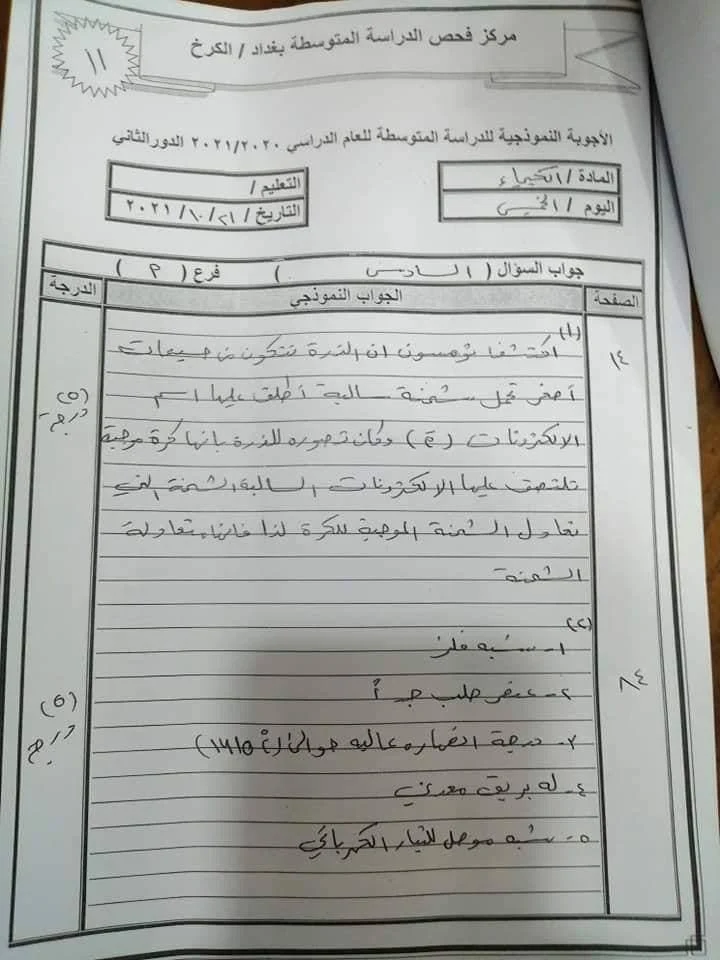 مركز فحص الدراسة المتوسطة بغداد / الكرخ
١١
الأجوبة النموذجية للدراسة المتوسطة للعام الدراسي ٢٠٢١/٢٠٢٠ الدور الثاني
المادة / الكيمياء
التعليم /
اليوم / الخميس
التاريخ / ٢١ / ١٠ / ٢٠٢١
جواب السؤال ( السادس ) فرع ( م )
الصفحة
الجواب النموذجي
الدرجة
١)
١٤
اكتشف ثومسون ان الذرة تتكون من جسيمات
اصغر تحمل شحنة سالبة أطلق عليها اسم
(٥) درجة
الالكترونات (e⁻) وكان تصوره للذرة بانها كرة موجبة
تلتصق عليها الالكترونات السالبة الشحنة التي
تعادل الشحنة الموجبة للكرة لذا فانها متعادلة
الشحنة
٢)
١- شبه فلز
٨٤
٢- عنصر صلب جداً
(٥) درجة
٣- درجة انصهاره عالية حوالي (١٤١٥ °C)
٤- له بريق معدني
٥- شبه موصل للتيار الكهربائي